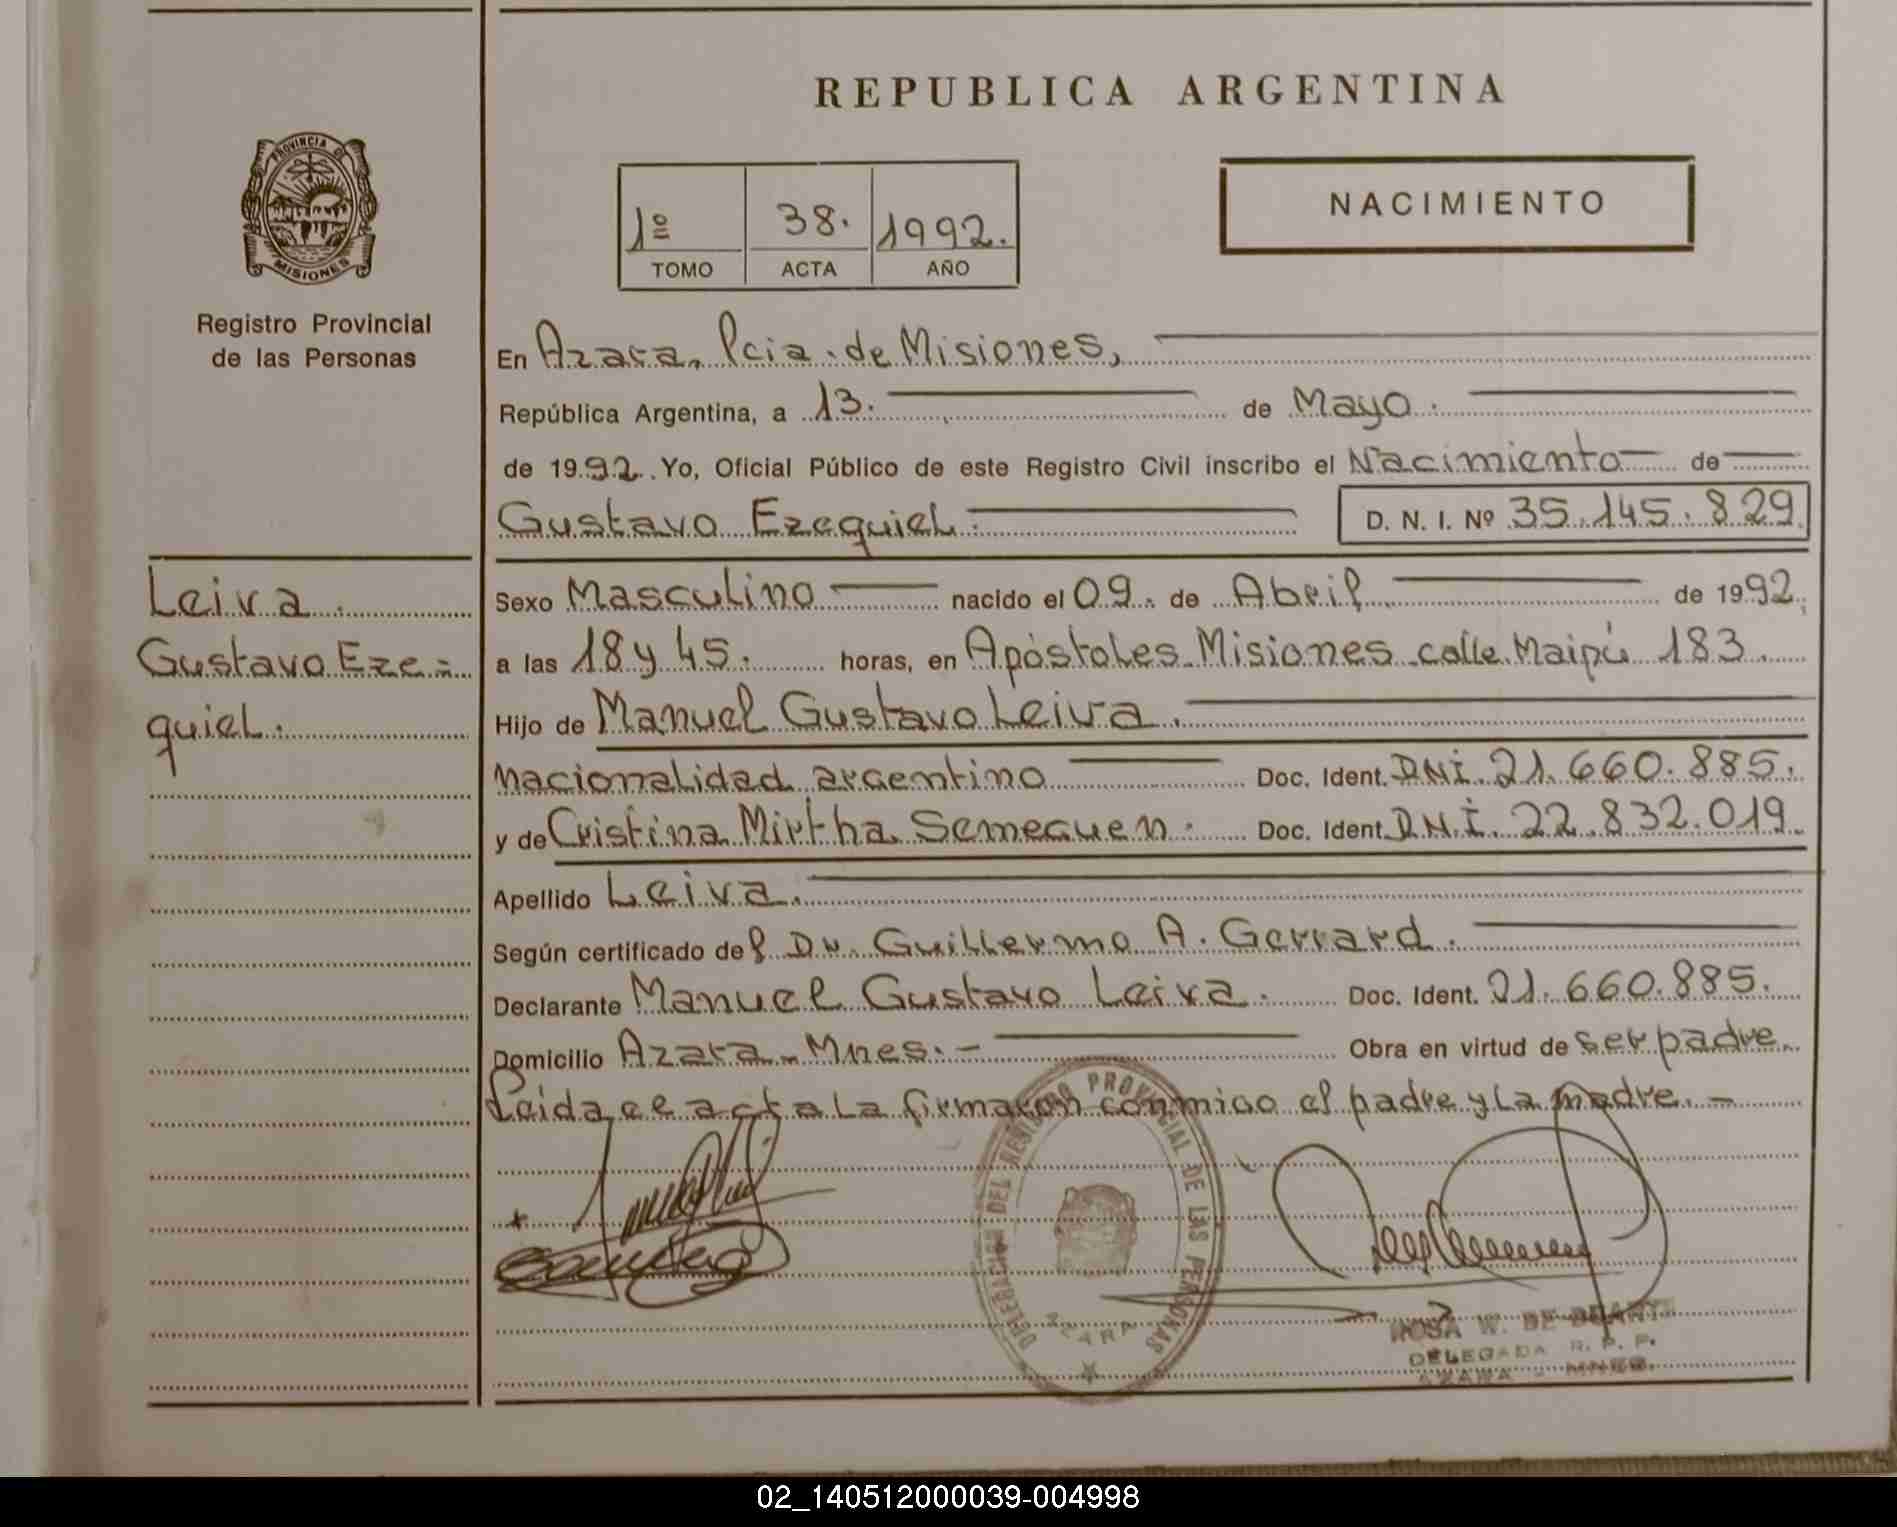 REPUBLICA ARGENTINA
PROVINCIA DE
MISIONES
Registro Provincial
de las Personas
1º 38. 1992.
TOMO ACTA AÑO
NACIMIENTO
En Azara, Pcia. de Misiones,
República Argentina, a 13. de Mayo.
de 1992. Yo, Oficial Público de este Registro Civil inscribo el Nacimiento de
Gustavo Ezequiel. D. N. I. Nº 35.145.829
Leiva.
Gustavo Eze=
quiel.
Sexo Masculino nacido el 09. de Abril de 1992,
a las 18 y 45. horas, en Apóstoles Misiones calle Maipú 183.
Hijo de Manuel Gustavo Leiva.
nacionalidad argentino Doc. Ident. DNI. 21.660.885.
y de Cristina Mirtha Semeguen. Doc. Ident. D.N.I. 22.832.019.
Apellido Leiva.
Según certificado del Dr. Guillermo A. Gerrard.
Declarante Manuel Gustavo Leiva. Doc. Ident. 21.660.885.
Domicilio Azara - Mnes. - Obra en virtud de ser padre.
Leida el acta la firmaron conmigo el padre y la madre. -
DELEGACION DEL REGISTRO PROVINCIAL DE LAS PERSONAS
AZARA
ROSA W. DE
DELEGADA R. P. P.
AZARA - MNES.
02_140512000039-004998